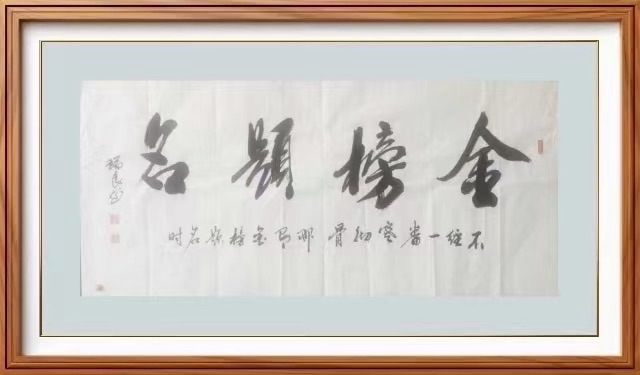 金榜題名
不经一番寒彻骨哪得金榜题名时
瑞良书